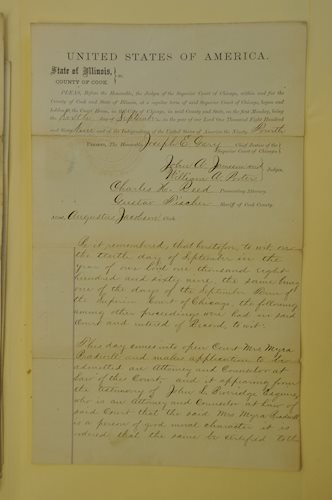 UNITED STATES OF AMERICA.
State of Illinois, } ss.
COUNTY OF COOK.
PLEAS, Before the Honorable, the Judges of the Superior Court of Chicago, within and for the
County of Cook and State of Illinois, at a regular term of said Superior Court of Chicago, begun and
holden at the Court House, in the City of Chicago, in said County and State, on the first Monday, being the
day of September in the year of our Lord One Thousand Eight Hundred
and Sixty Nine and of the Independence of the United States of America the Ninety Fourth
PRESENT, The Honorable Joseph E. Gary Chief Justice of the Superior Court of Chicago.
John A. Jameson and
William A. Porter Judges.
Charles H. Reed Prosecuting Attorney.
Gustav Fischer Sheriff of Cook County.
Attest, Augustus Jacobson Clerk.
Be it remembered, that heretofore to wit, on
the tenth day of September in the
year of our Lord one thousand eight
hundred and sixty nine, the same being
one of the days of the September Term of
the Superior Court of Chicago, the following
among other proceedings were had in said
Court and entered of Record, to wit.
This day comes into open Court Mrs Myra
Bradwell and makes application to be
admitted an Attorney and Counselor at
Law of this Court, and it appearing from
the testimony of John L. Esquire
who is an Attorney and Counselor at Law of
said Court that the said Mrs Myra Bradwell
is a person of good moral character it is
ordered that the same be certified to the